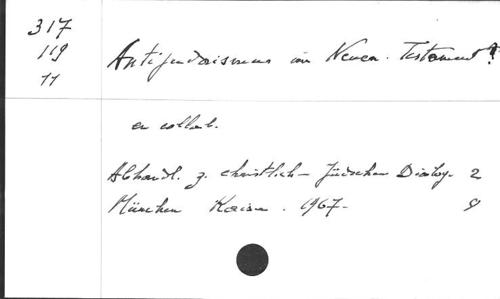 317
119
11
Antijudaismus im Neuen. Testament?
en collab.
Abhandl. z. christlich- jüdischen Dialog. 2
München Kaiser. 1967-
8